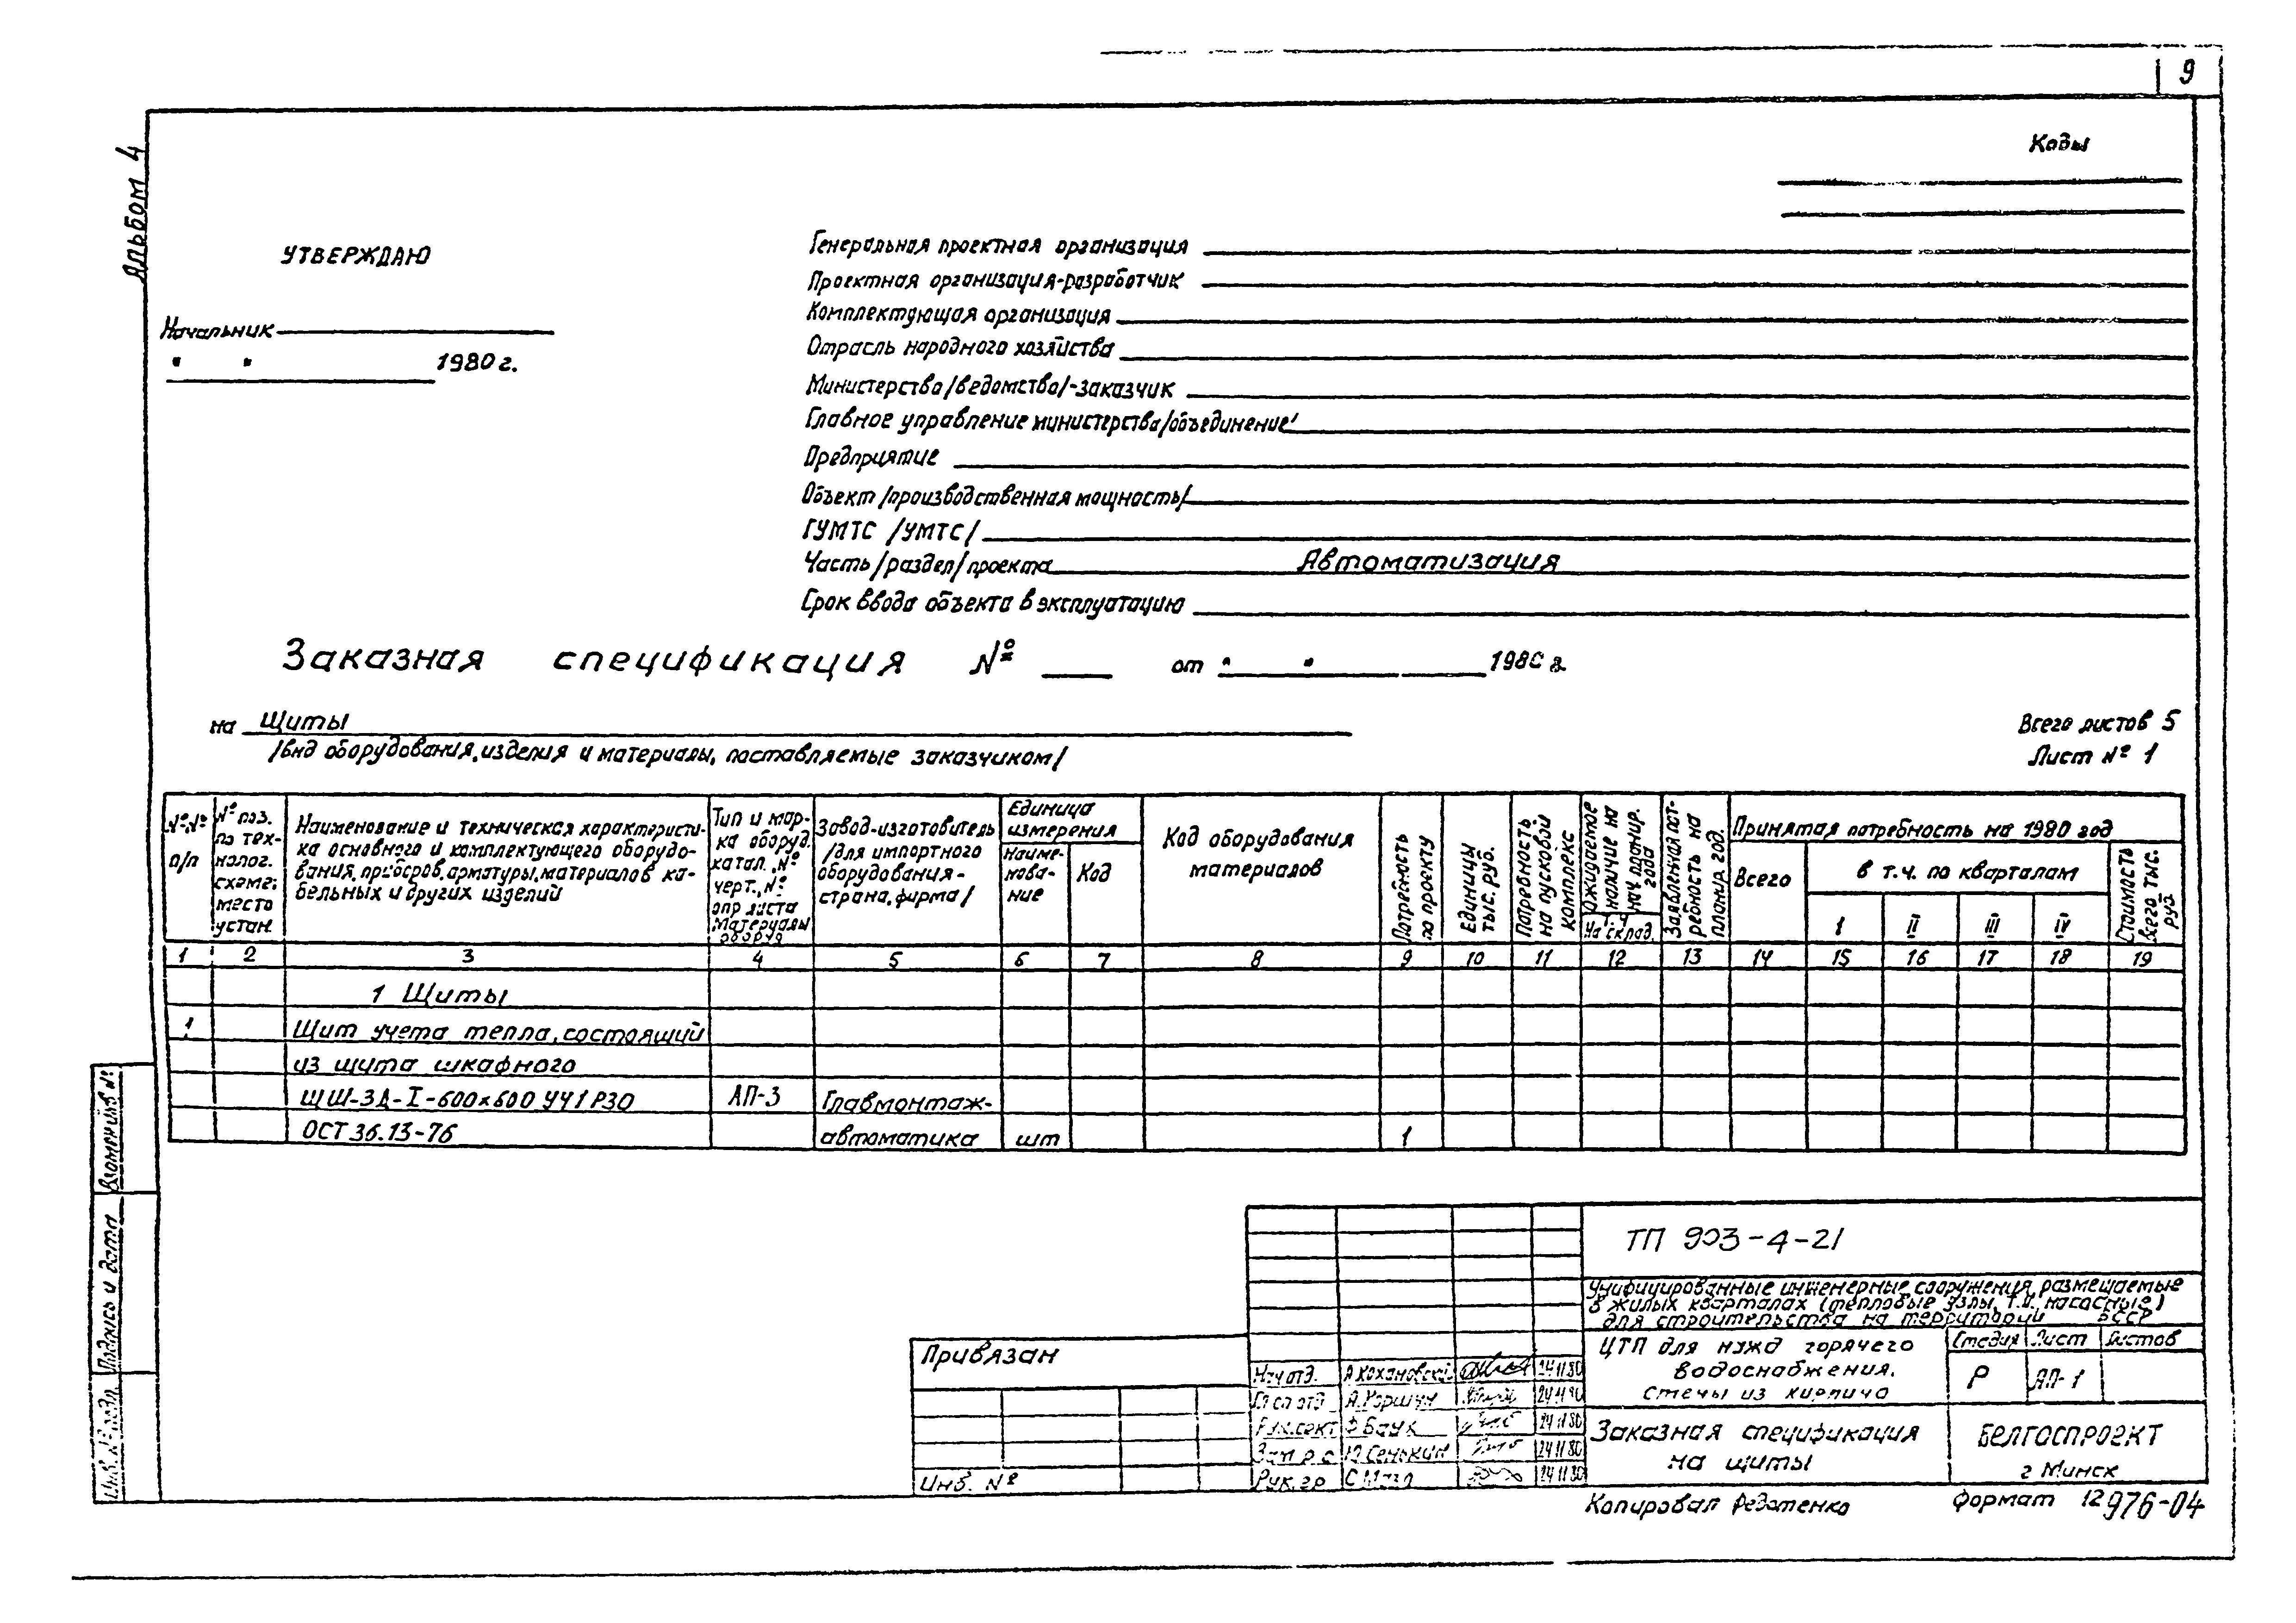 9
Альбом 4
Коды
УТВЕРЖДАЮ
Начальник
" " 1980 г.
Генеральная проектная организация
Проектная организация-разработчик
Комплектующая организация
Отрасль народного хозяйства
Министерство/ведомство/-заказчик
Главное управление министерства/объединение/
Предприятие
Объект /производственная мощность/
ГУМТС /УМТС/
Часть/раздел/проекта Автоматизация
Срок ввода объекта в эксплуатацию
Заказная спецификация № от " " 1980 г.
на Щиты
/вид оборудования, изделия и материалы, поставляемые заказчиком/
Всего листов 5
Лист № 1
№№ п/п
№ поз. по технолог. схеме; место устан.
Наименование и техническая характеристи-
ка основного и комплектующего оборудо-
вания, приборов, арматуры, материалов ка-
бельных и других изделий
Тип и мар-
ка оборуд.
катал., №
черт., №
опр листа
Материалы
оборуд
Завод-изготовитель
/для импортного
оборудования-
страна, фирма/
Единица
измерения
Наиме-
нова-
ние
Код
Код оборудования
материалов
Потребность
по проекту
Единицы
тыс. руб.
Потребность
на пусковой
комплекс
Ожидаемое
наличие на
нач. планир.
года
в т.ч
на склад.
Заявленная пот-
ребность на
планир. год.
Принятая потребность на 1980 год
Всего
в т.ч. по кварталам
I II III IV
Стоимость
всего тыс.
руб
1 2 3 4 5 6 7 8 9 10 11 12 13 14 15 16 17 18 19
1 Щиты
1 Щит учета тепла, состоящий
из щита шкафного
ЩШ-ЗД-I-600×600 УЧ1Р30 АП-3 Главмонтаж-
ОСТ 36.13-76 автоматика шт 1
Взам инв №
Подпись и дата
Инв. № подл.
ТП 903-4-21
Унифицированные инженерные сооружения, размещаемые
в жилых кварталах (тепловые узлы, т.п., насосные)
для строительства на территории БССР
ЦТП для нужд горячего
водоснабжения.
Стены из кирпича
Стадия Лист Листов
Р АП-1
Заказная спецификация
на щиты
БЕЛГОСПРОЕКТ
г Минск
Привязан
Инв. №
Нач отд. А Кохановский 24 11 80
Гл сп отд А. Коршун 24 11 80
Рук. сект Ф Баук 24 11 80
Зам р с Ю. Сенькин 24 11 80
Рук. гр 24 11 80
Копировал Федотенко
Формат 12
976-04